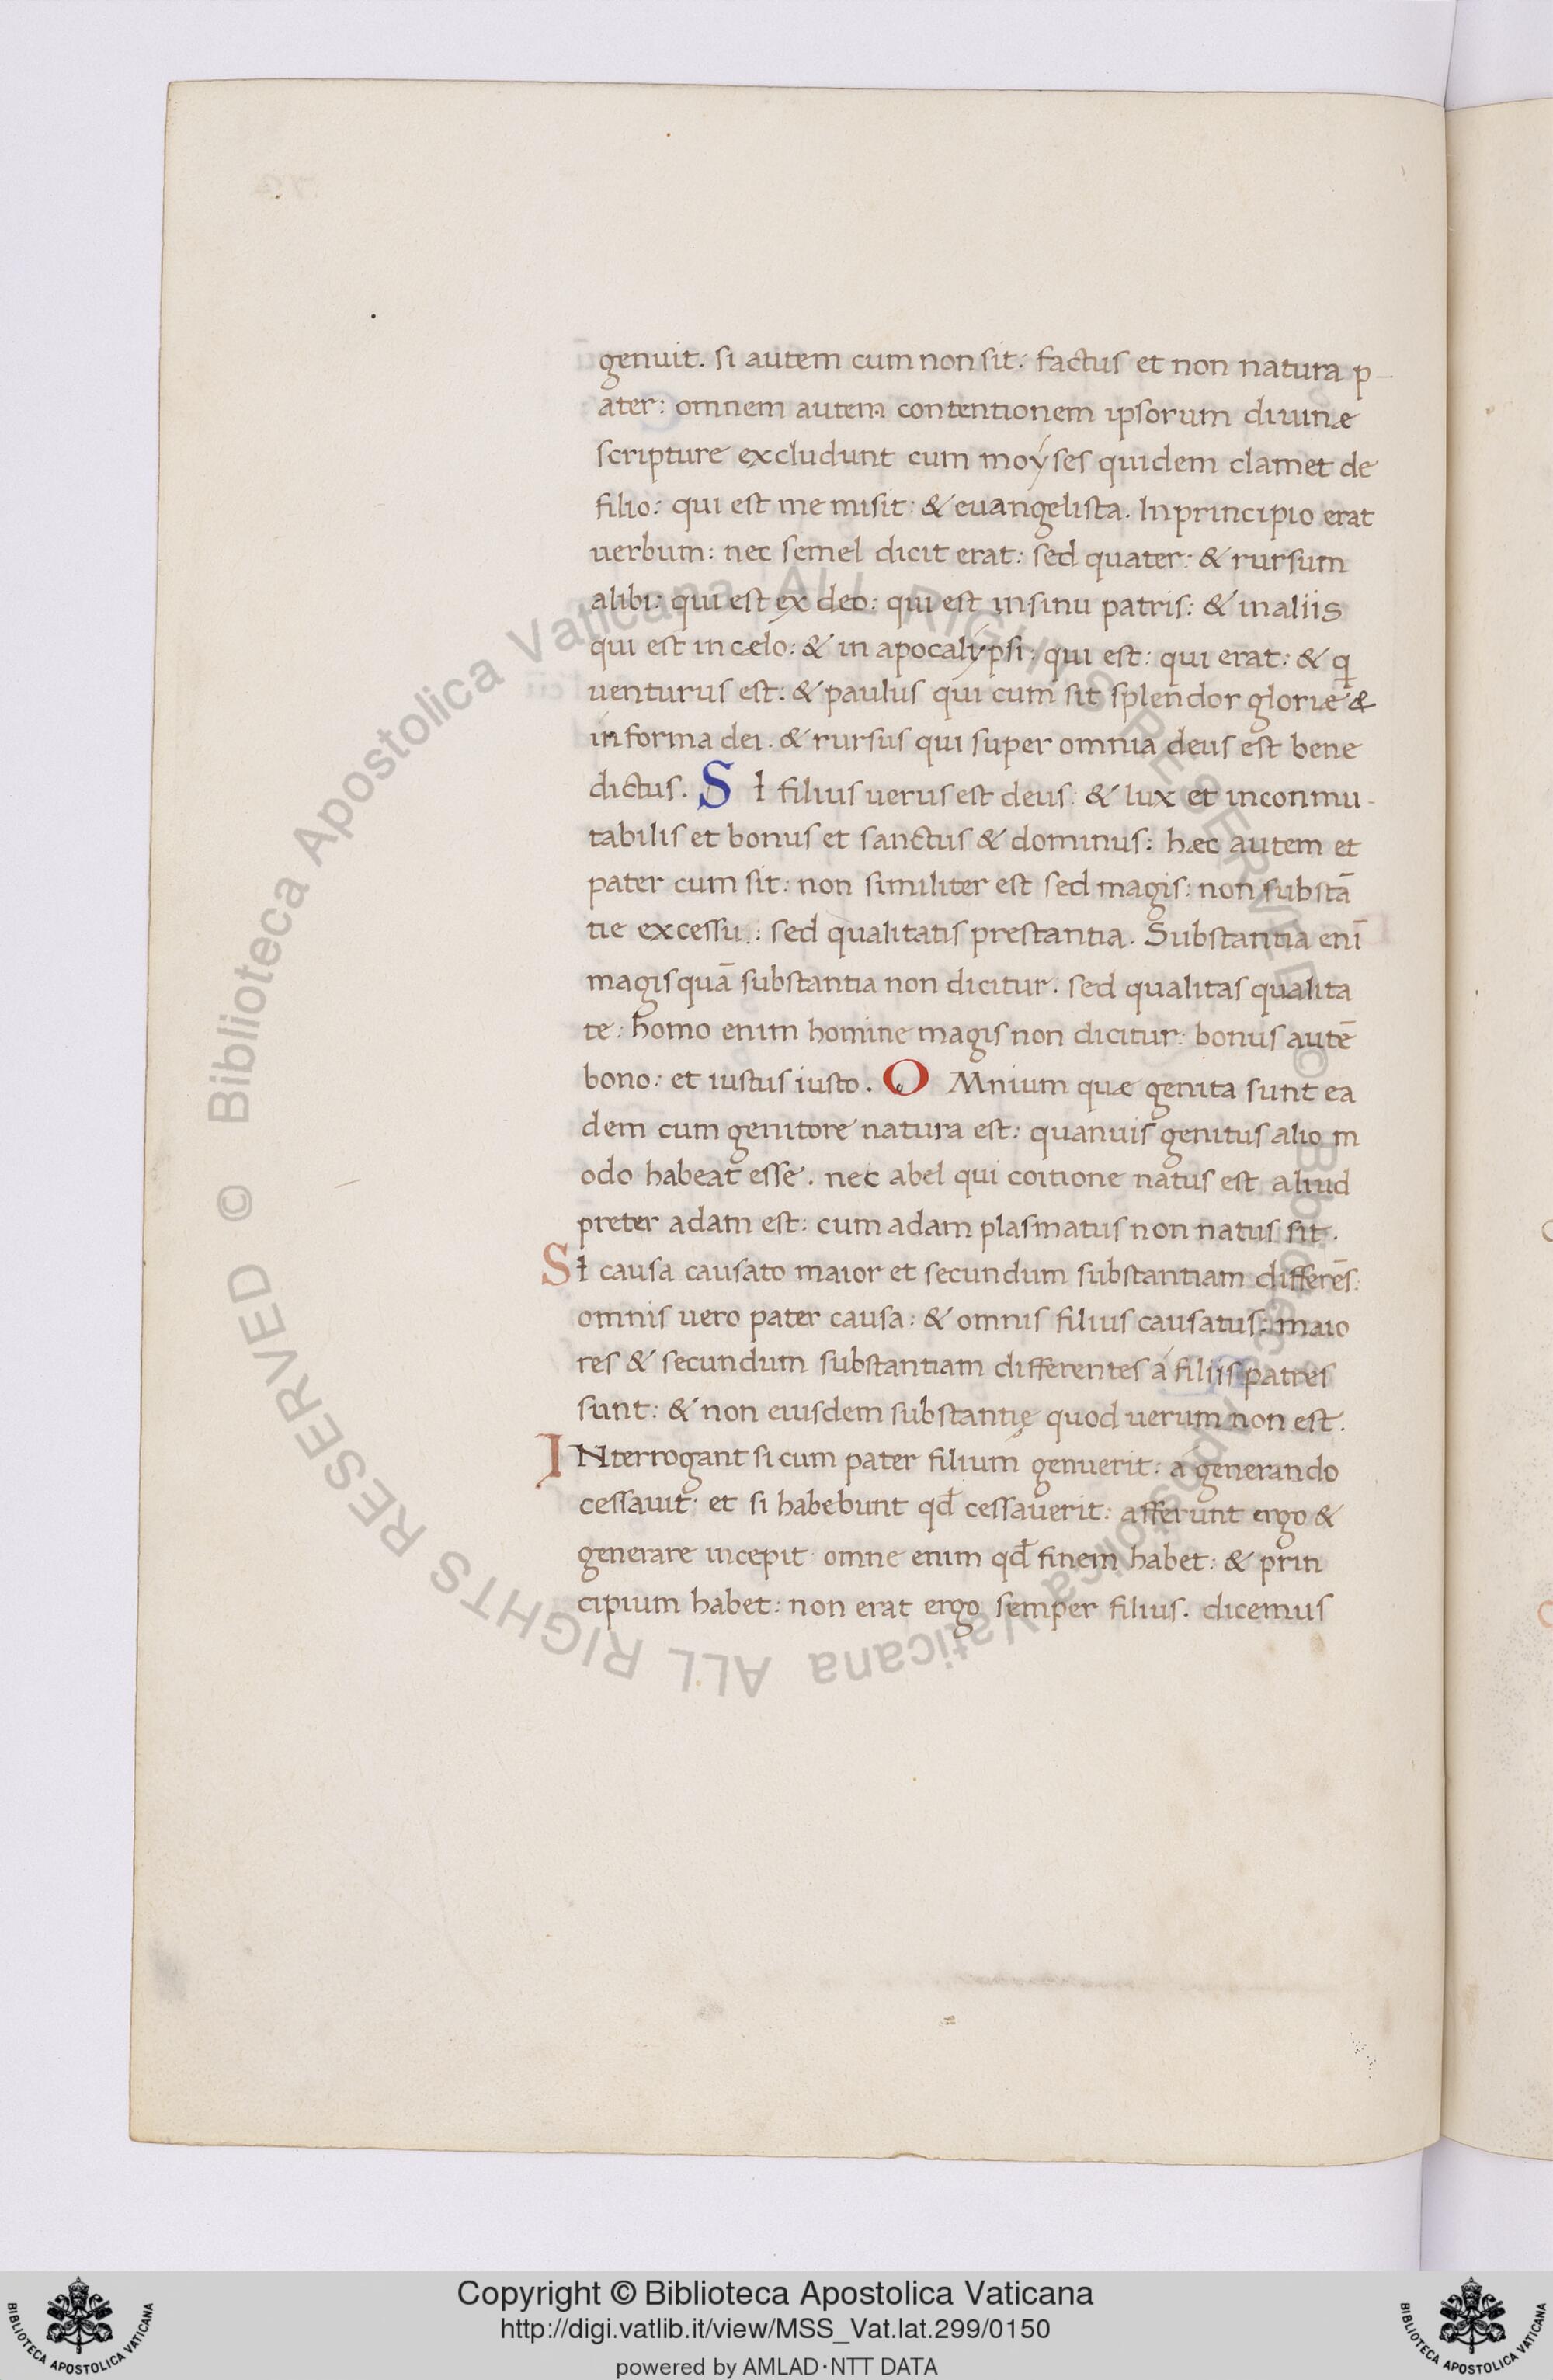 genuit. si autem cum non sit: factus et non natura p-
ater: omnem autem contentionem ipsorum diuinæ
scripture excludunt cum moyses quidem clamet de
filio: qui est me misit: & euangelista. Inprincipio erat
uerbum: nec semel dicit erat: sed quater: & rursum
alibi: qui est ex deo: qui est insinu patris: & inaliis
qui est in cælo: & in apocalypsi: qui est: qui erat: & qͥ
uenturus est. & paulus qui cum sit splendor gloriæ &
informa dei. & rursus qui super omnia deus est bene
dictus. SI filius uerus est deus: & lux et inconmu-
tabilis et bonus et sanctus & dominus: hæc autem et
pater cum sit: non similiter est sed magis: non substā
tie excessu: sed qualitatis prestantia. Substantia enī
magis quā substantia non dicitur. sed qualitas qualita
te: homo enim homine magis non dicitur: bonus autē
bono: et iustus iusto. OMnium quæ genita sunt ea
dem cum genitore natura est: quanuis genitus alio m
odo habeat esse. nec abel qui coitione natus est aliud
preter adam est: cum adam plasmatus non natus sit.
SI causa causato maior et secundum substantiam differēs:
omnis uero pater causa: & omnis filius causatus: maio
res & secundum substantiam differentes á filiis patres
sunt: & non eiusdem substantię quod uerum non est.
INterrogant si cum pater filium genuerit: a generando
cessauit: et si habebunt qđ cessauerit: afferunt ergo &
generare incepit: omne enim qđ finem habet: & prin
cipium habet: non erat ergo semper filius. dicemus
© Biblioteca Apostolica Vaticana ALL RIGHTS RESERVED © Biblioteca Apostolica Vaticana ALL RIGHTS RESERVED
Copyright © Biblioteca Apostolica Vaticana
http://digi.vatlib.it/view/MSS_Vat.lat.299/0150
powered by AMLAD·NTT DATA
BIBLIOTECA APOSTOLICA VATICANA
BIBLIOTECA APOSTOLICA VATICANA